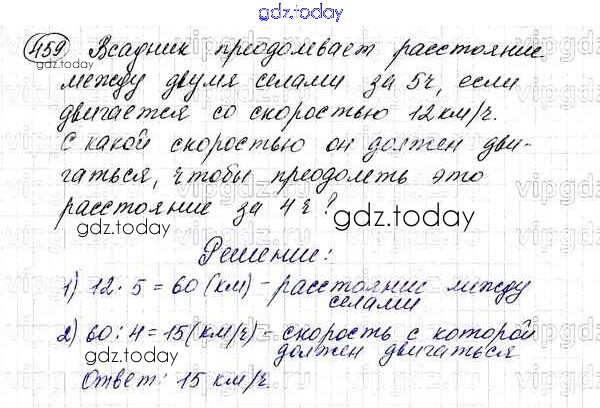 gdz.today
459 Всадник преодолевает расстояние
gdz.today
между двумя селами за 5ч, если
двигается со скоростью 12км/ч.
С какой скоростью он должен дви-
гаться, чтобы преодолеть это
расстояние за 4ч?
gdz.today
Решение:
1) 12·5=60(км)-расстояние между
селами
2) 60:4=15(км/ч)-скорость с которой
gdz.today должен двигаться
Ответ: 15 км/ч.